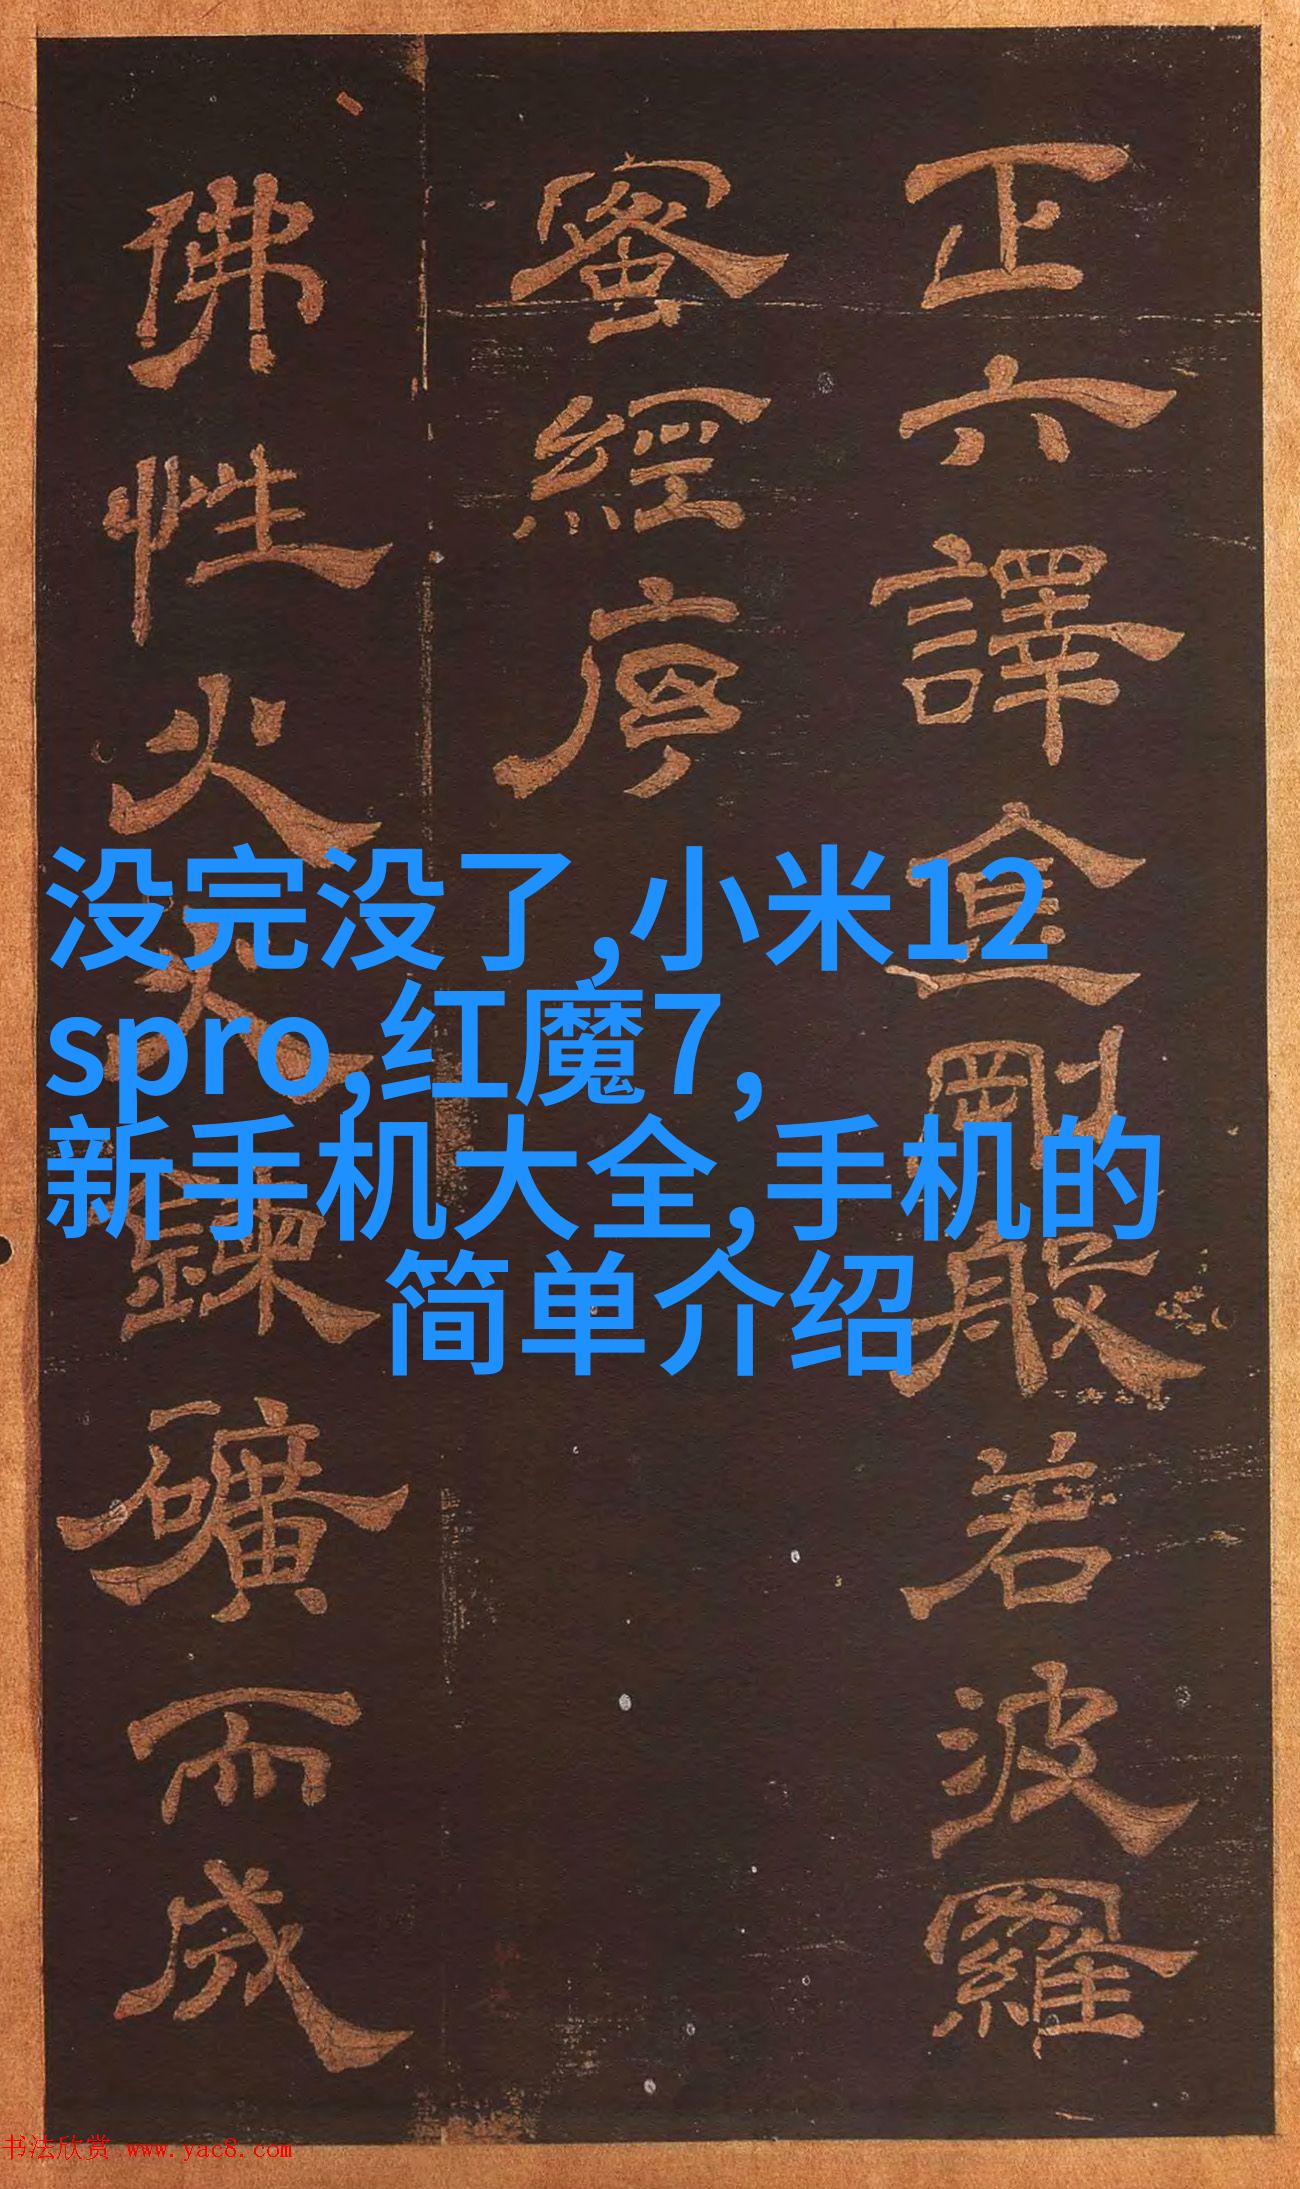 正六譯金剛般若波羅
蜜經序
佛性火
鍊礦而成
没完没了,小米12
spro,红魔7,
新手机大全,手机的
简单介绍
书法欣赏 www.yac8.com